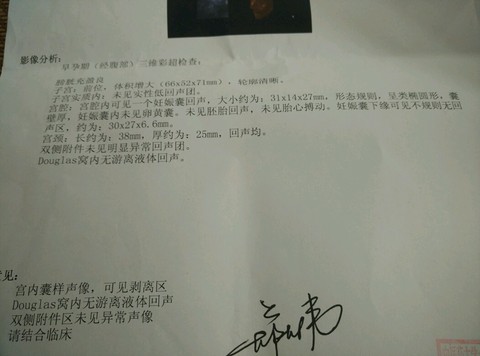 影像分析:
早孕期（经腹部）三维彩超检查:
膀胱充盈良
子宫: 前位, 体积增大（66x52x71mm）, 轮廓清晰。
子宫实质内: 未见实性低回声团。
宫腔: 宫腔内可见一个妊娠囊回声, 大小约为: 31x14x27mm, 形态规则, 呈类椭圆形, 囊
壁厚, 妊娠囊内未见卵黄囊。未见胚胎回声, 未见胎心搏动。妊娠囊下缘可见不规则无回
声区, 约为: 30x27x6.6mm。
宫颈: 长约为: 38mm, 厚约为: 25mm, 回声均。
双侧附件未见明显异常回声团。
Douglas窝内无游离液体回声。
见:
宫内囊样声像, 可见剥离区
Douglas窝内无游离液体回声
双侧附件区未见异常声像
请结合临床